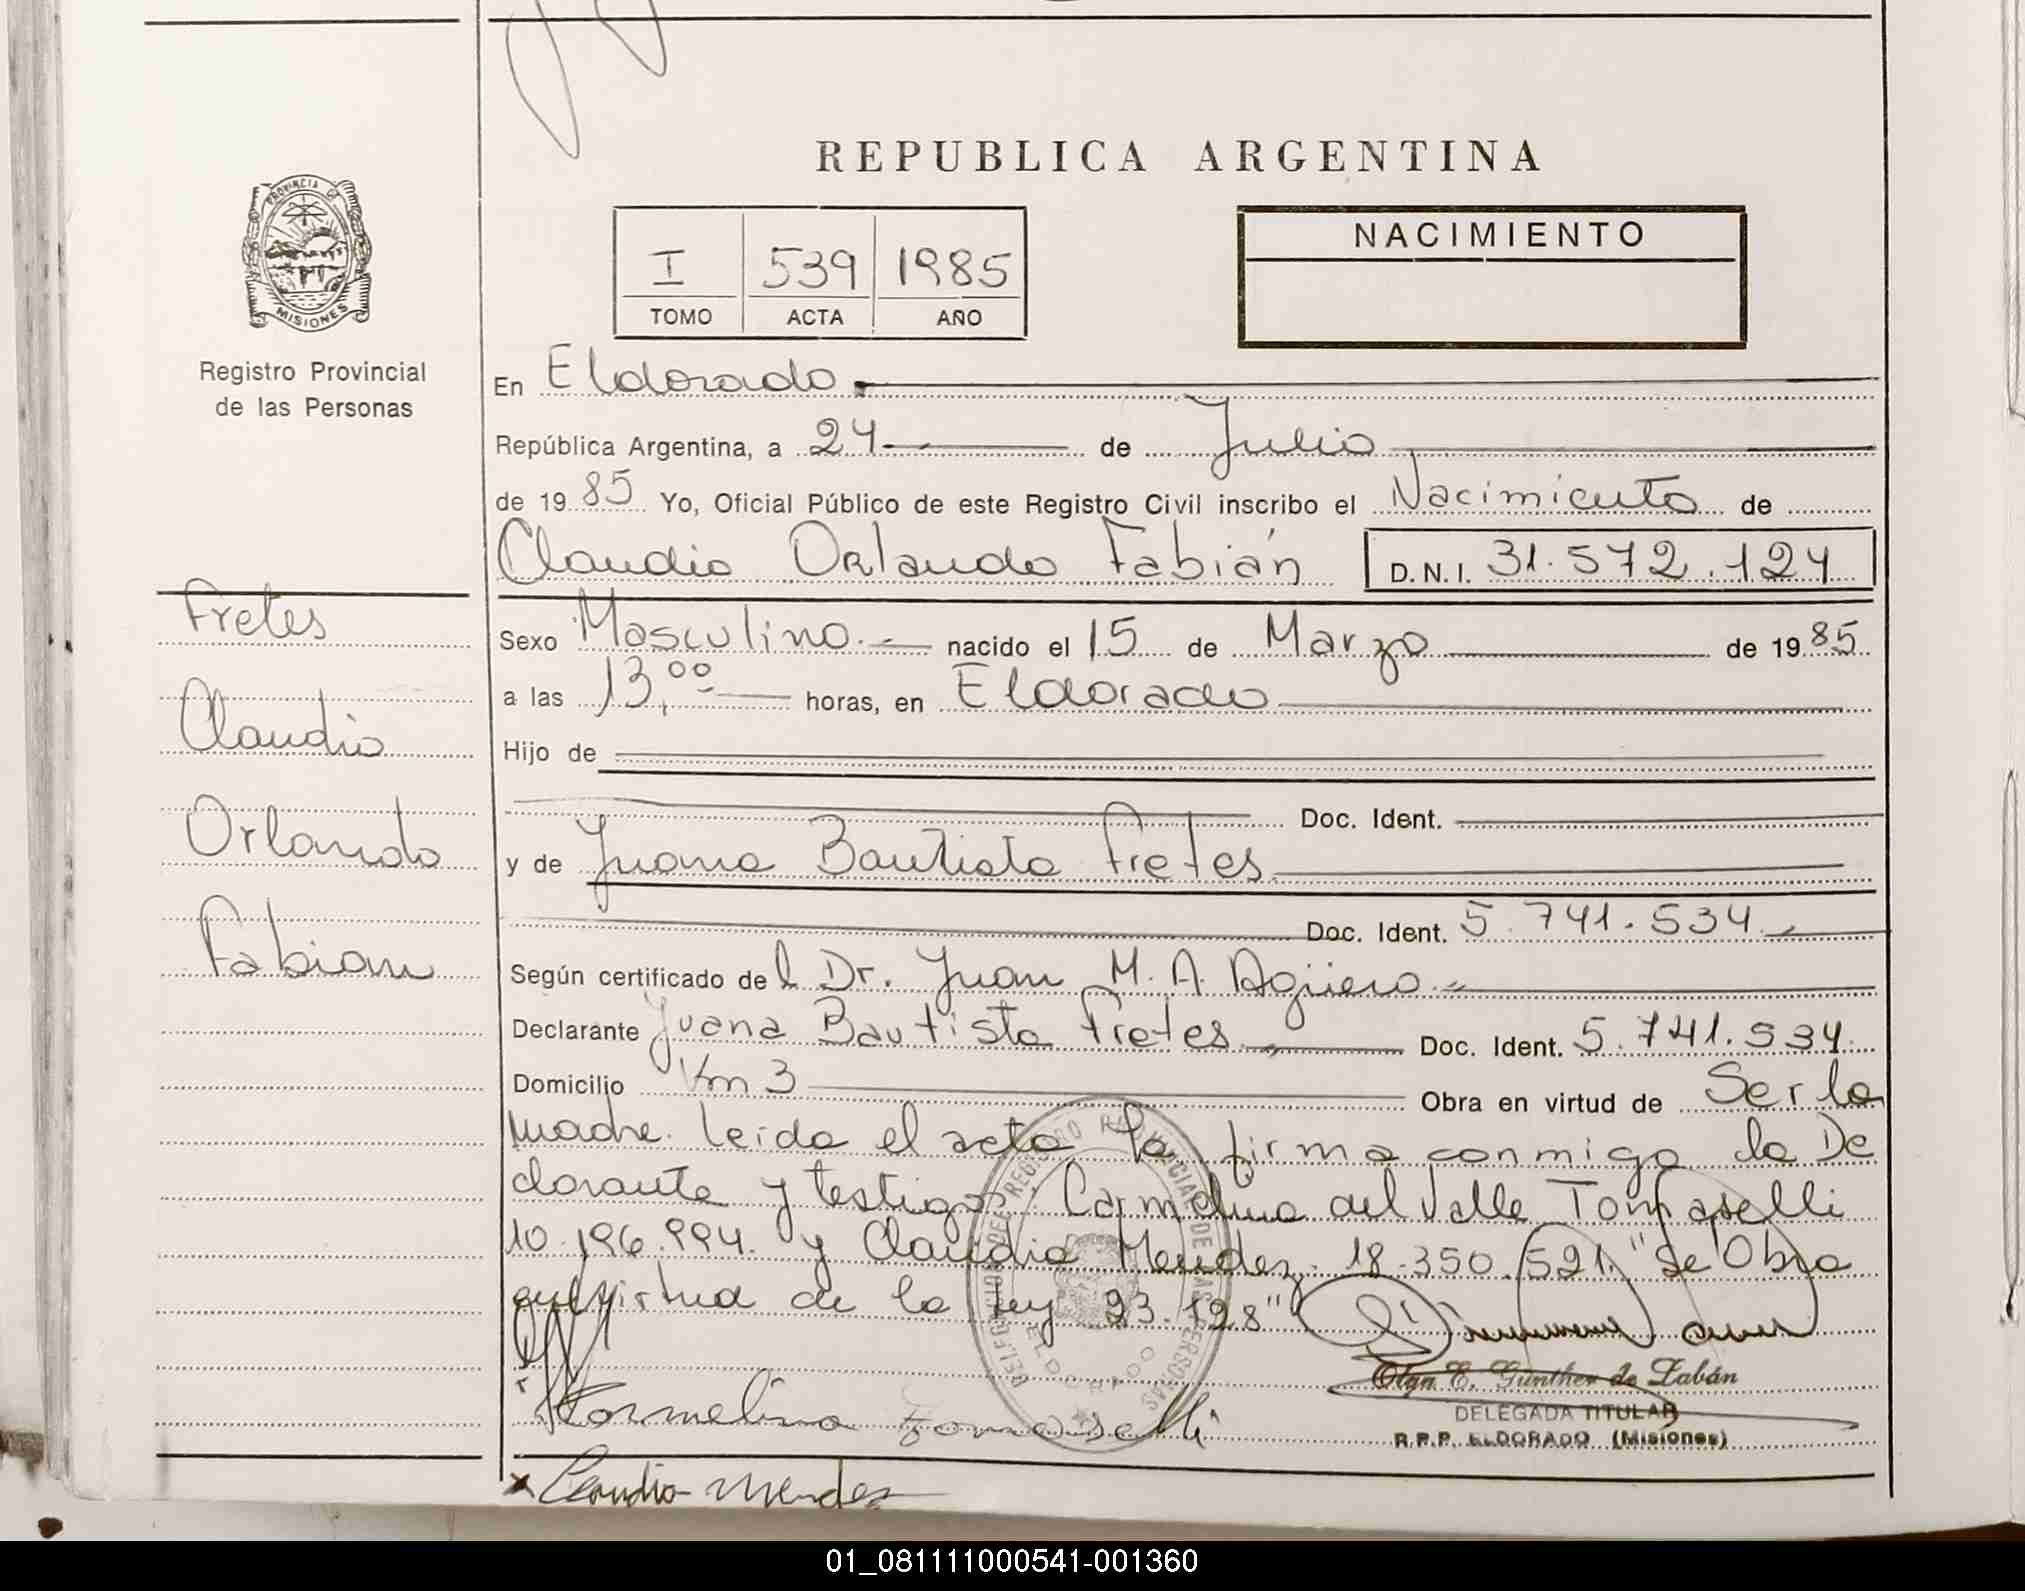 REPUBLICA ARGENTINA
PROVINCIA DE MISIONES
Registro Provincial
de las Personas
I 539 1985
TOMO ACTA AÑO
NACIMIENTO
En Eldorado.
República Argentina, a 24 de Julio
de 1985 Yo, Oficial Público de este Registro Civil inscribo el Nacimiento de
Claudio Orlando Fabián D.N.I. 31.572.124
Fretes
Claudio
Orlando
Fabian
Sexo Masculino.- nacido el 15 de Marzo de 1985
a las 13,00 horas, en Eldorado
Hijo de
Doc. Ident.
y de Juana Bautista Fretes
Doc. Ident. 5.741.534.-
Según certificado del Dr. Juan M. A. Agüero.-
Declarante Juana Bautista Fretes.- Doc. Ident. 5.741.534.
Domicilio Km 3 Obra en virtud de Ser la
madre. Leida el acta la firma conmigo la De
clarante y testigos, Carmelina del Valle Tomaselli
10.196.994. y Claudia Mendez. 18.350.521. "Se Obra
en virtud de la ley 23.128"
DELEGACION DEL REGISTRO PROVINCIAL DE LAS PERSONAS
ELDORADO
Olga E. Günther de Zabán
DELEGADA TITULAR
R.P.P. ELDORADO (Misiones)
Carmelina Tomaselli
x Claudia Mendez
01_081111000541-001360